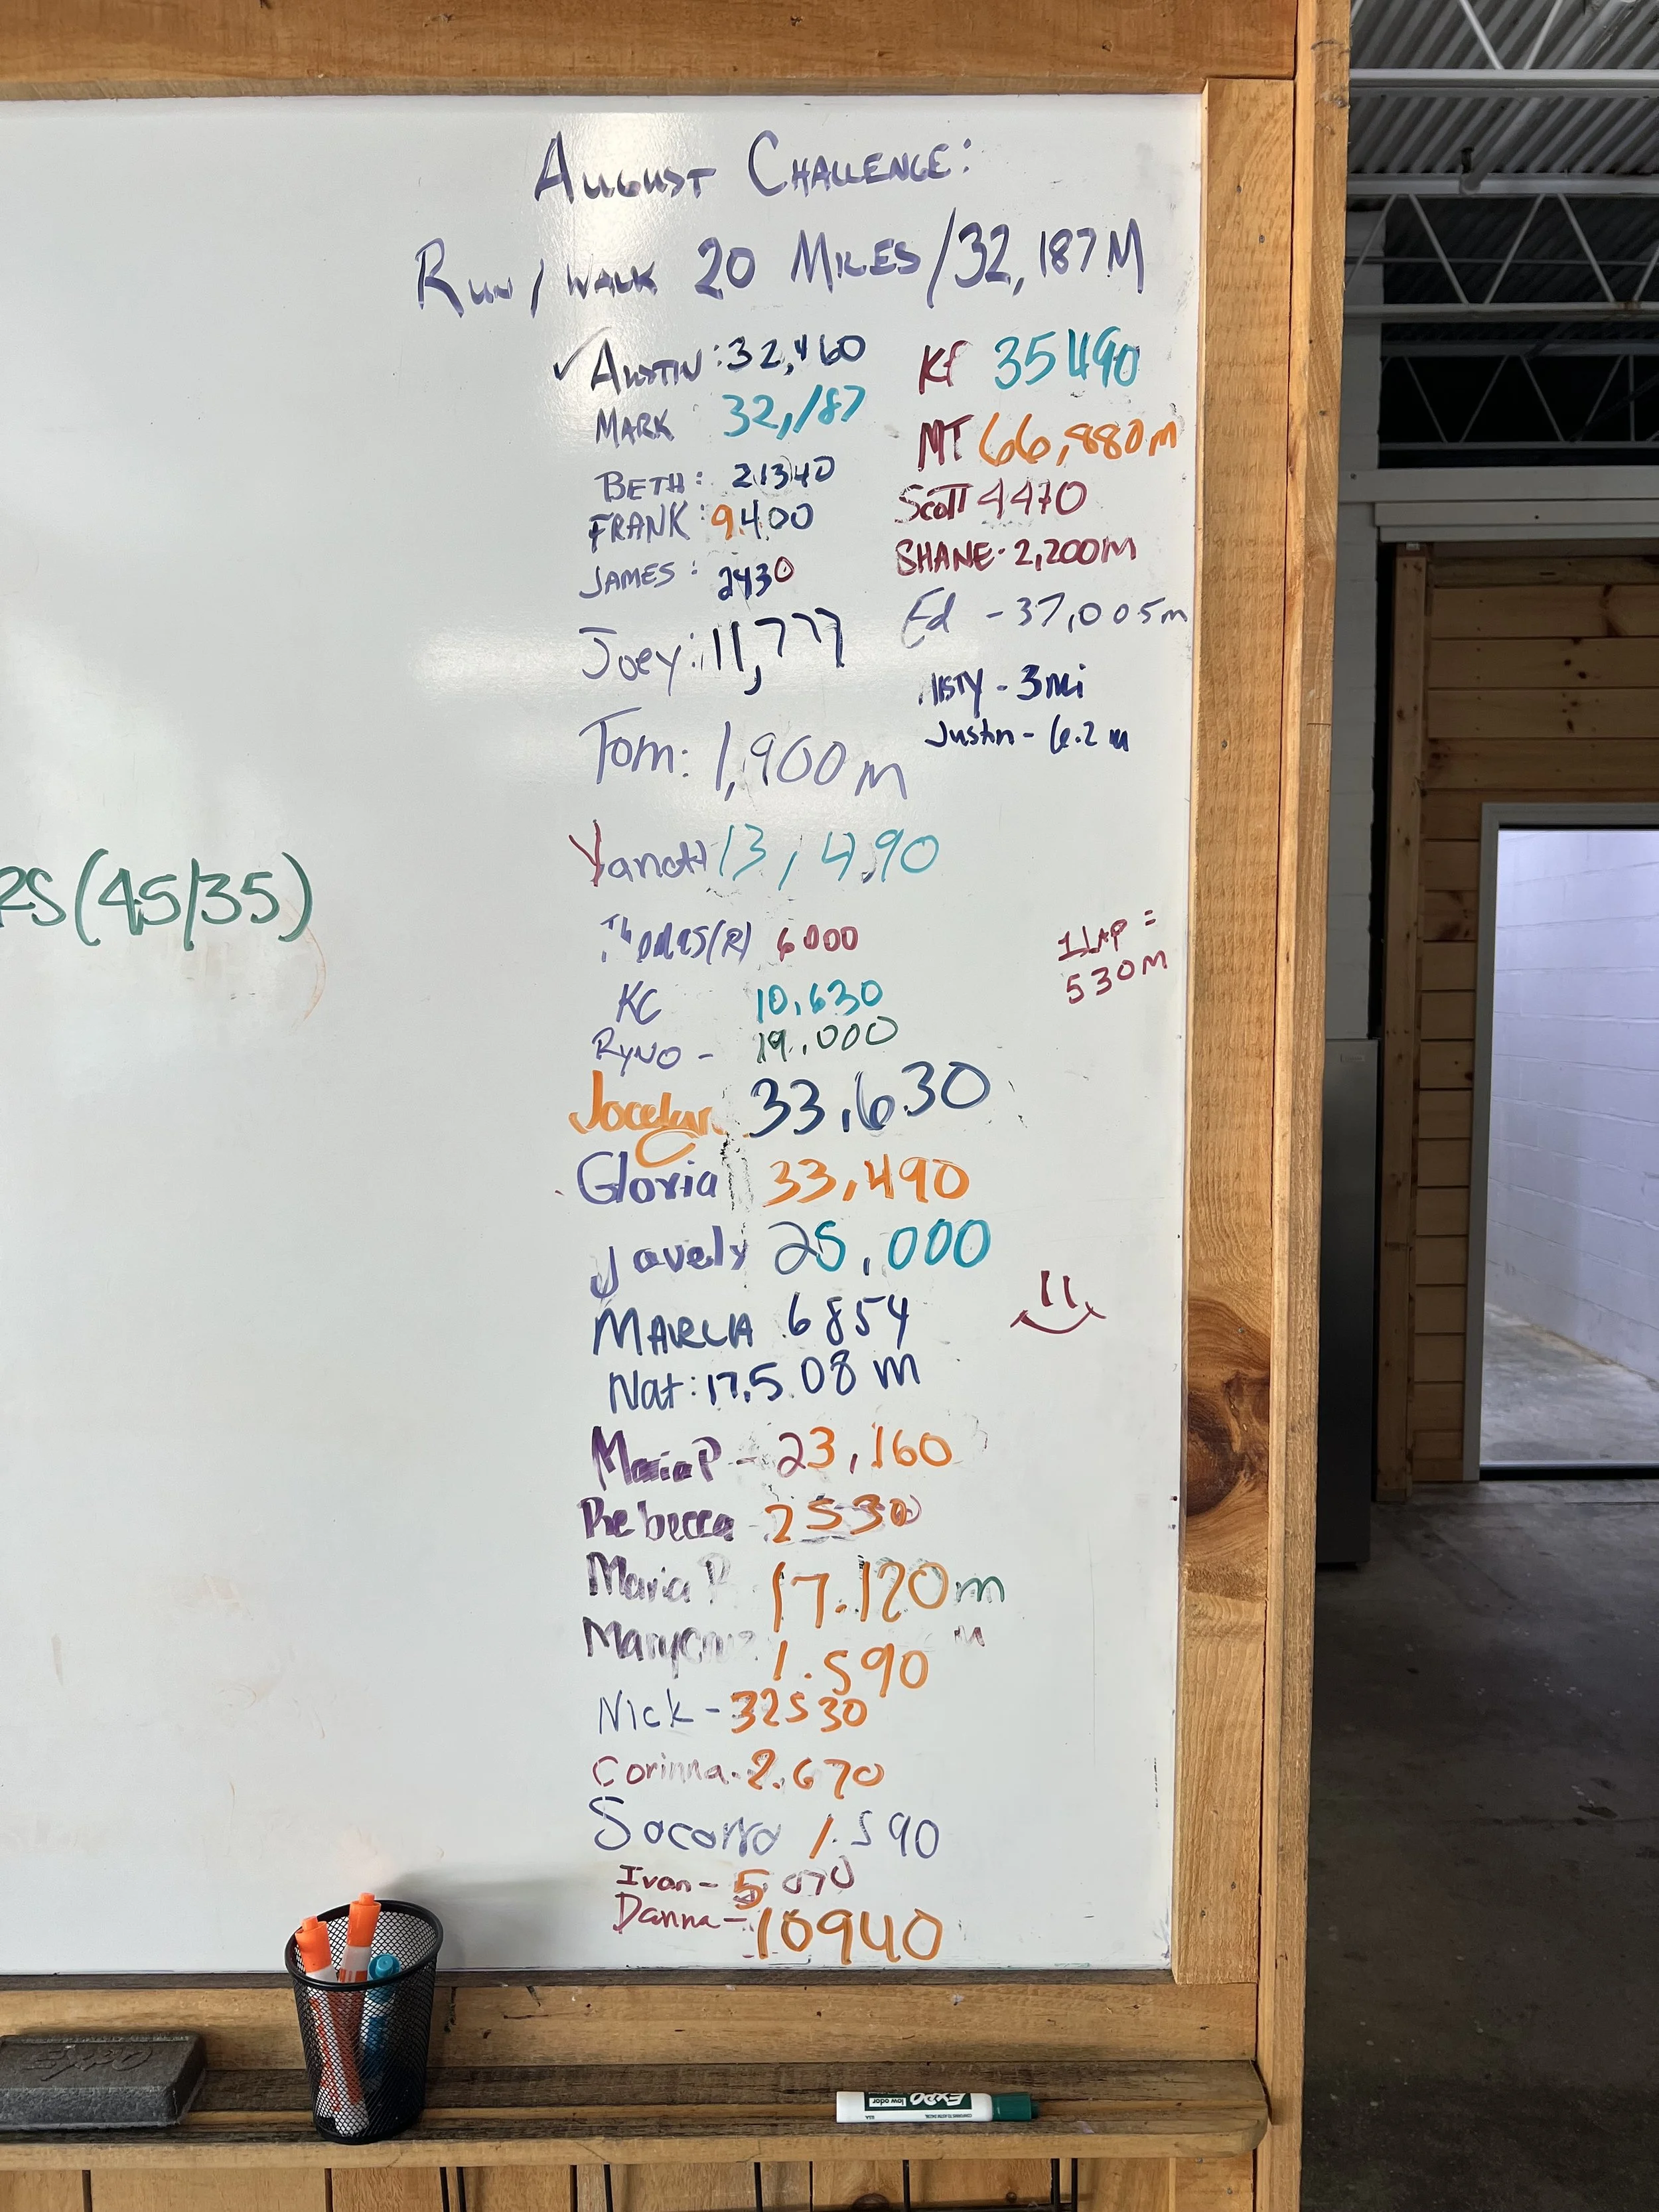 August Challenge:
Run/Walk 20 Miles/32,187M
✓ Austin: 32,460
Mark 32,187
Beth: 21340
Frank: 9400
James: 2430
Joey: 11,777
Tom: 1,900m
13,490
6000
KC 10,630
Ryno - 19,000
Jocelyn 33,630
Gloria 33,490
Javely 25,000
Marcia 6854
Nat: 17,508 m
Maria P - 23,160
Rebecca - 2530
Maria P 17.120m
1.590
Nick - 32530
Corinna - 2.670
Socorro 1.590
Ivan - 5070
Danna - 10940
KF 35490
MT 66,880m
Scott 4470
Shane - 2,200m
Ed - 37,005m
3mi
Justin - 6.2 m
1 Lap =
530m
RS (45/35)
EXPO
EXPO
low odor